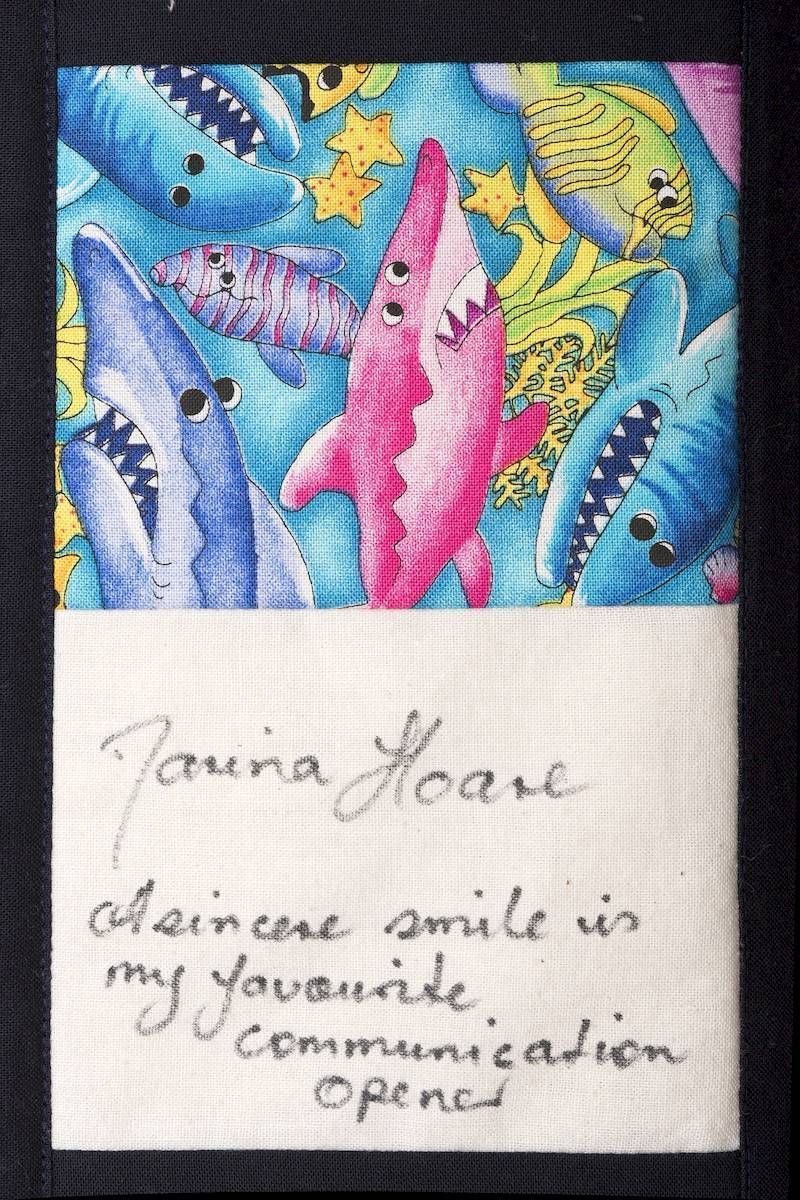 Hoare
A sincere smile is
my favourite
communication
opener